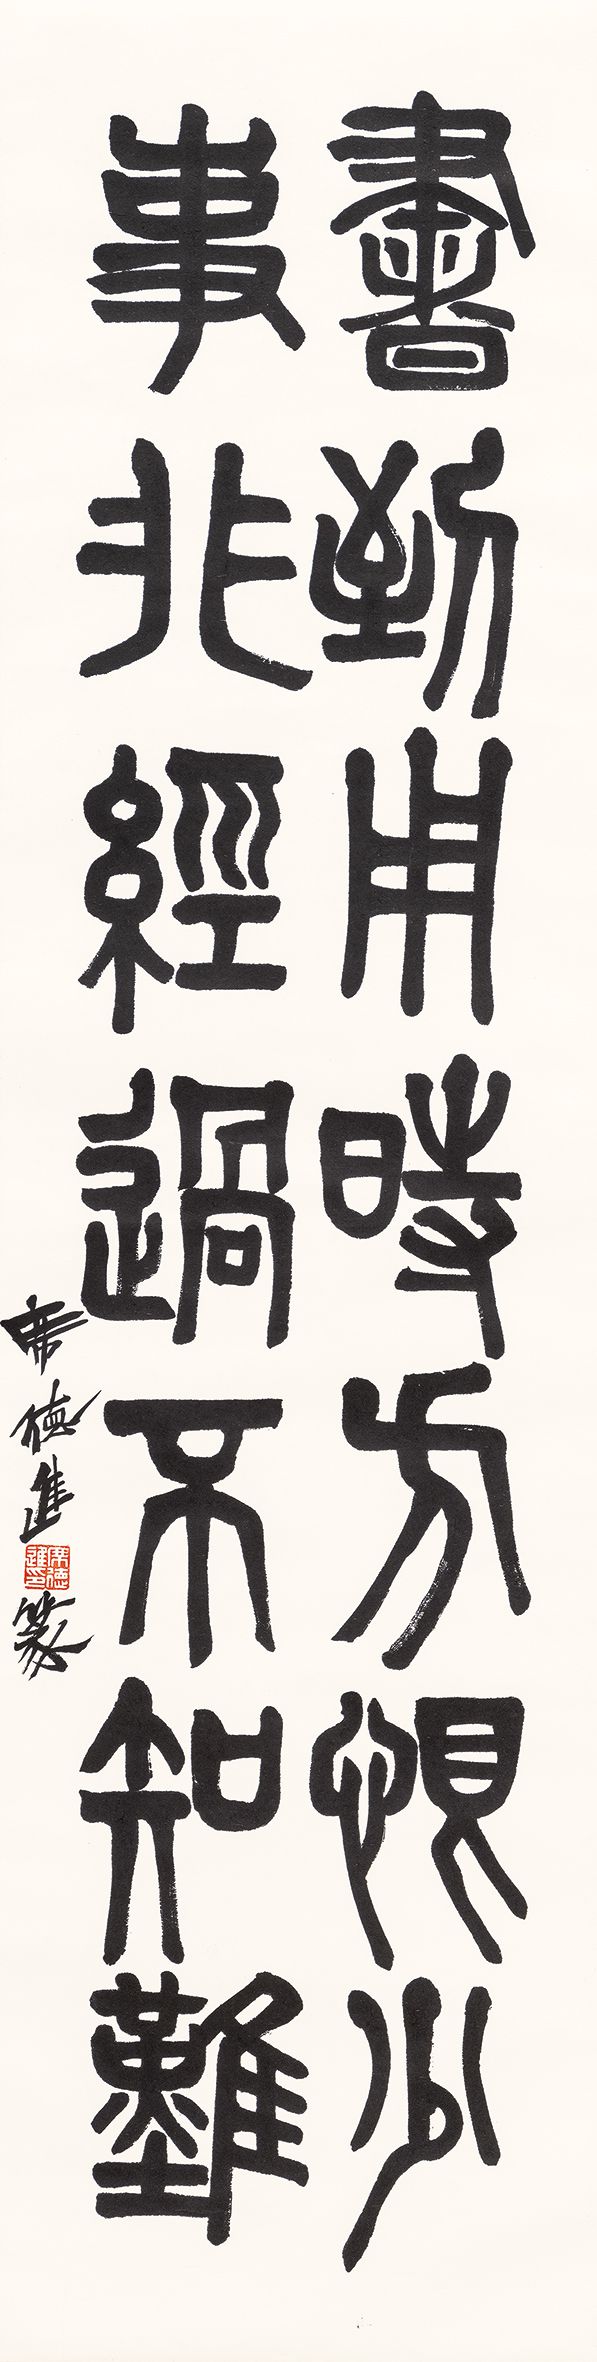 書到用時方恨少
事非經過不知難
席德進
席德進印
篆